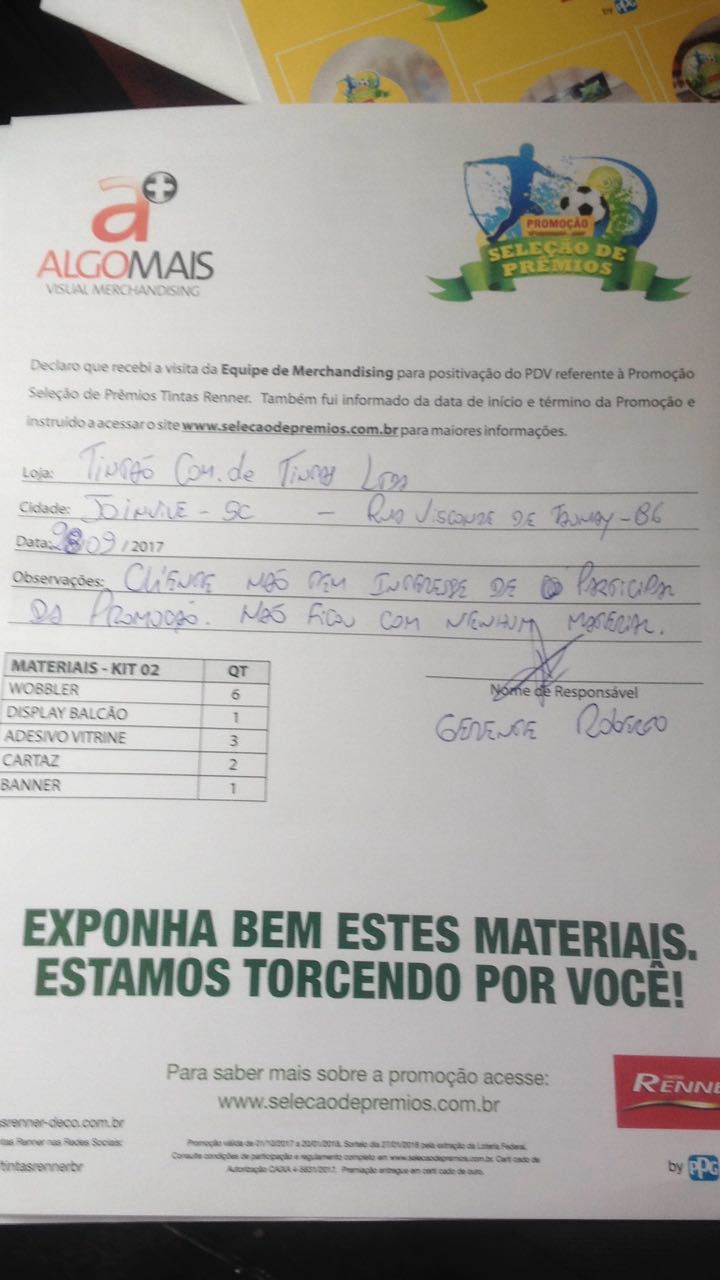 by PPG
a+
ALGOMAIS
VISUAL MERCHANDISING
PROMOÇÃO
SELEÇÃO DE
PRÊMIOS
Declaro que recebi a visita da Equipe de Merchandising para positivação do PDV referente à Promoção
Seleção de Prêmios Tintas Renner. Também fui informado da data de início e término da Promoção e
instruído a acessar o site www.selecaodepremios.com.br para maiores informações.
Loja: TINTÃO COM. DE TINTAS LTDA
Cidade: JOINVILE - SC - RUA VISCONDE DE TAUNAY - 86
Data: 28/09/2017
Observações: CLIENTE NÃO TEM INTERESSE DE PARTICIPAR
DA PROMOÇÃO. NÃO FICOU COM NENHUM MATERIAL.
MATERIAIS - KIT 02 QT
WOBBLER 6
DISPLAY BALCÃO 1
ADESIVO VITRINE 3
CARTAZ 2
BANNER 1
Nome de Responsável
GERENTE ROBERTO
EXPONHA BEM ESTES MATERIAIS.
ESTAMOS TORCENDO POR VOCÊ!
Para saber mais sobre a promoção acesse:
www.selecaodepremios.com.br
RENNE
srenner-deco.com.br
tas Renner nas Redes Sociais:
tintasrennerbr
Promoção válida de 21/10/2017 a 20/01/2018. Sorteio dia 27/01/2018 pela extração da Loteria Federal.
Consulte condições de participação e regulamento completo em www.selecaodepremios.com.br. Certi cado de
Autorização CAIXA 4-5831/2017. Premiação entregue em certi cado de ouro.
by PPG